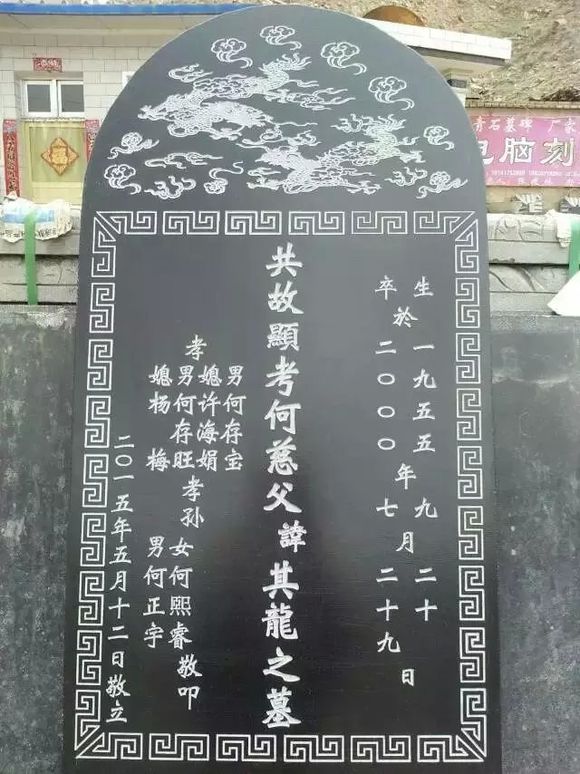 生一九五五九二十
於年月日
卒二〇〇〇七二十九
共故顯考何慈父諱其龍之墓
男何存宝
媳许海娟
孝男何存旺
媳杨梅
孝孙
女何熙睿
男何正宇
敬叩
二〇一五年五月十二日敬立
青石墓碑 厂家
脑刻
福